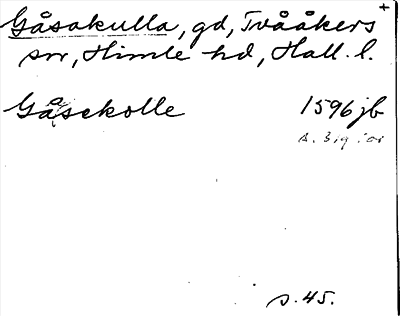 Gåsakulla, gd, Tvååkers
sn, Himle hd, Hall. l.
Gåsekolle 1596 jb
s. 45.